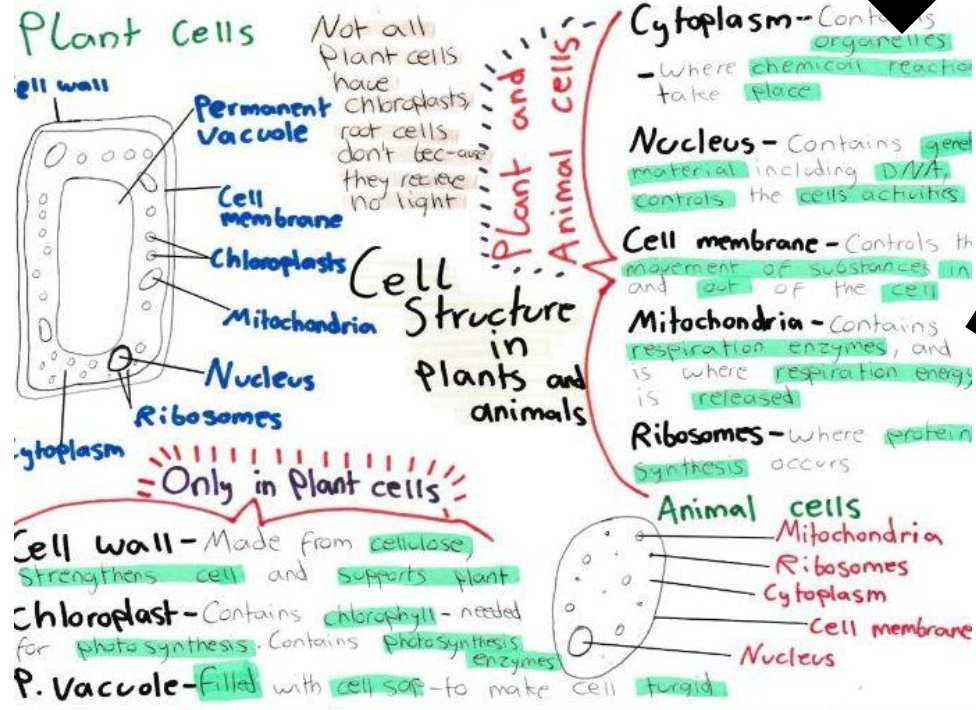 Plant cells
ell wall
Permanent
vacuole
Cell
membrane
Chloroplasts
Mitochondria
Nucleus
Ribosomes
ytoplasm
Not all
Plant cells
have
chloroplasts,
root cells
don't bec-ause
they recieve
no light
Plant and
Animal cells
Cell
Structure
in
Plants and
animals
Cytoplasm-- Contains
organelles
- Where chemical reaction
take place
Nucleus - Contains genet
material including DNA,
controls the cells activities
Cell membrane - Controls th
movement of substances in
and out of the cell
Mitochondria - Contains
respiration enzymes, and
is where respiration energy
is released
Ribosomes - where protein
synthesis occurs
Only in Plant cells
Cell wall - Made from cellulose,
strengthens cell and supports plant
Chloroplast - Contains chlorophyll - needed
for photosynthesis. Contains photosynthesis
enzymes
P. Vacuole - filled with cell sap - to make cell turgid
Animal cells
Mitochondria
Ribosomes
Cytoplasm
Cell membrane
Nucleus